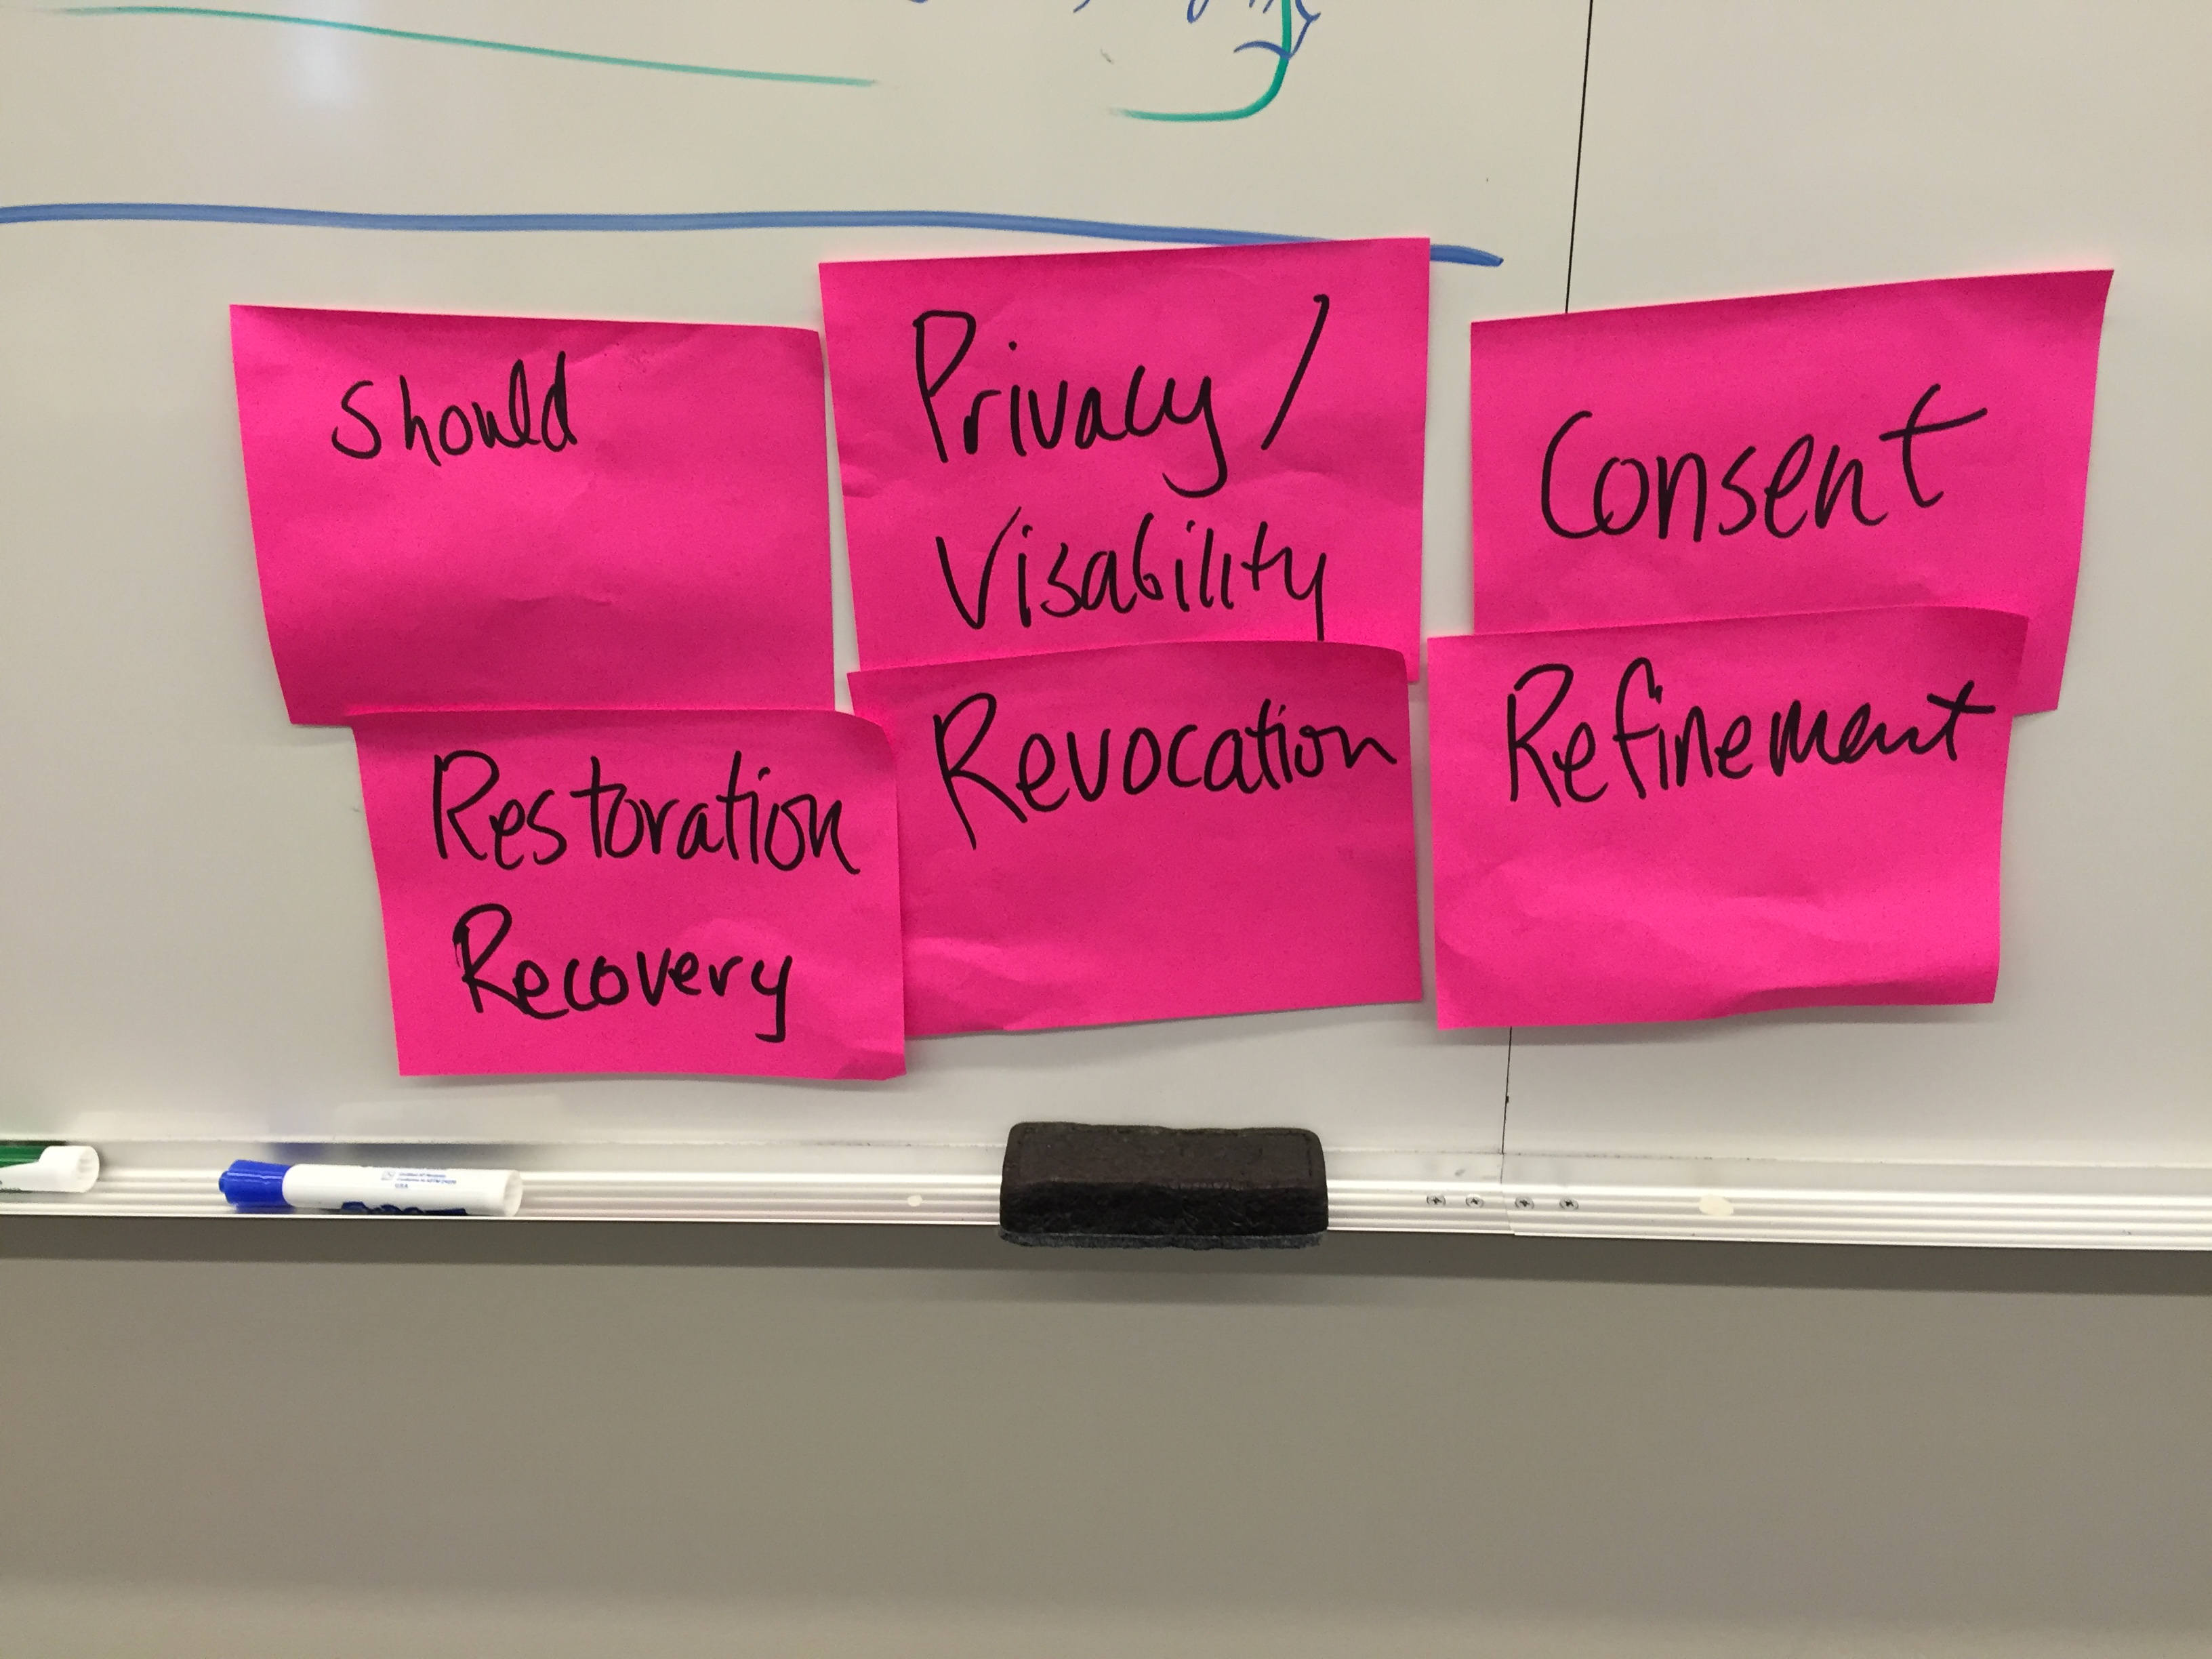 should
Privacy /
Visability
Consent
Restoration
Recovery
Revocation
Refinement